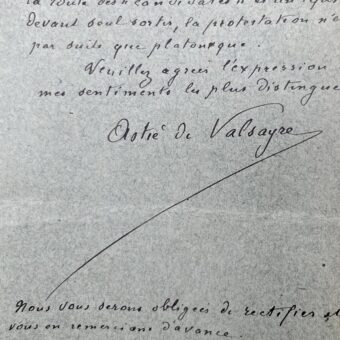 la toute des candidates n'
devant seul sortir, la protestation n'e
par suite que platonique.
Veuillez agréer l'expression
mes sentiments les plus distingué
Astié de Valsayre
Nous vous serons obligées de rectifier et
vous en remercions d'avance.